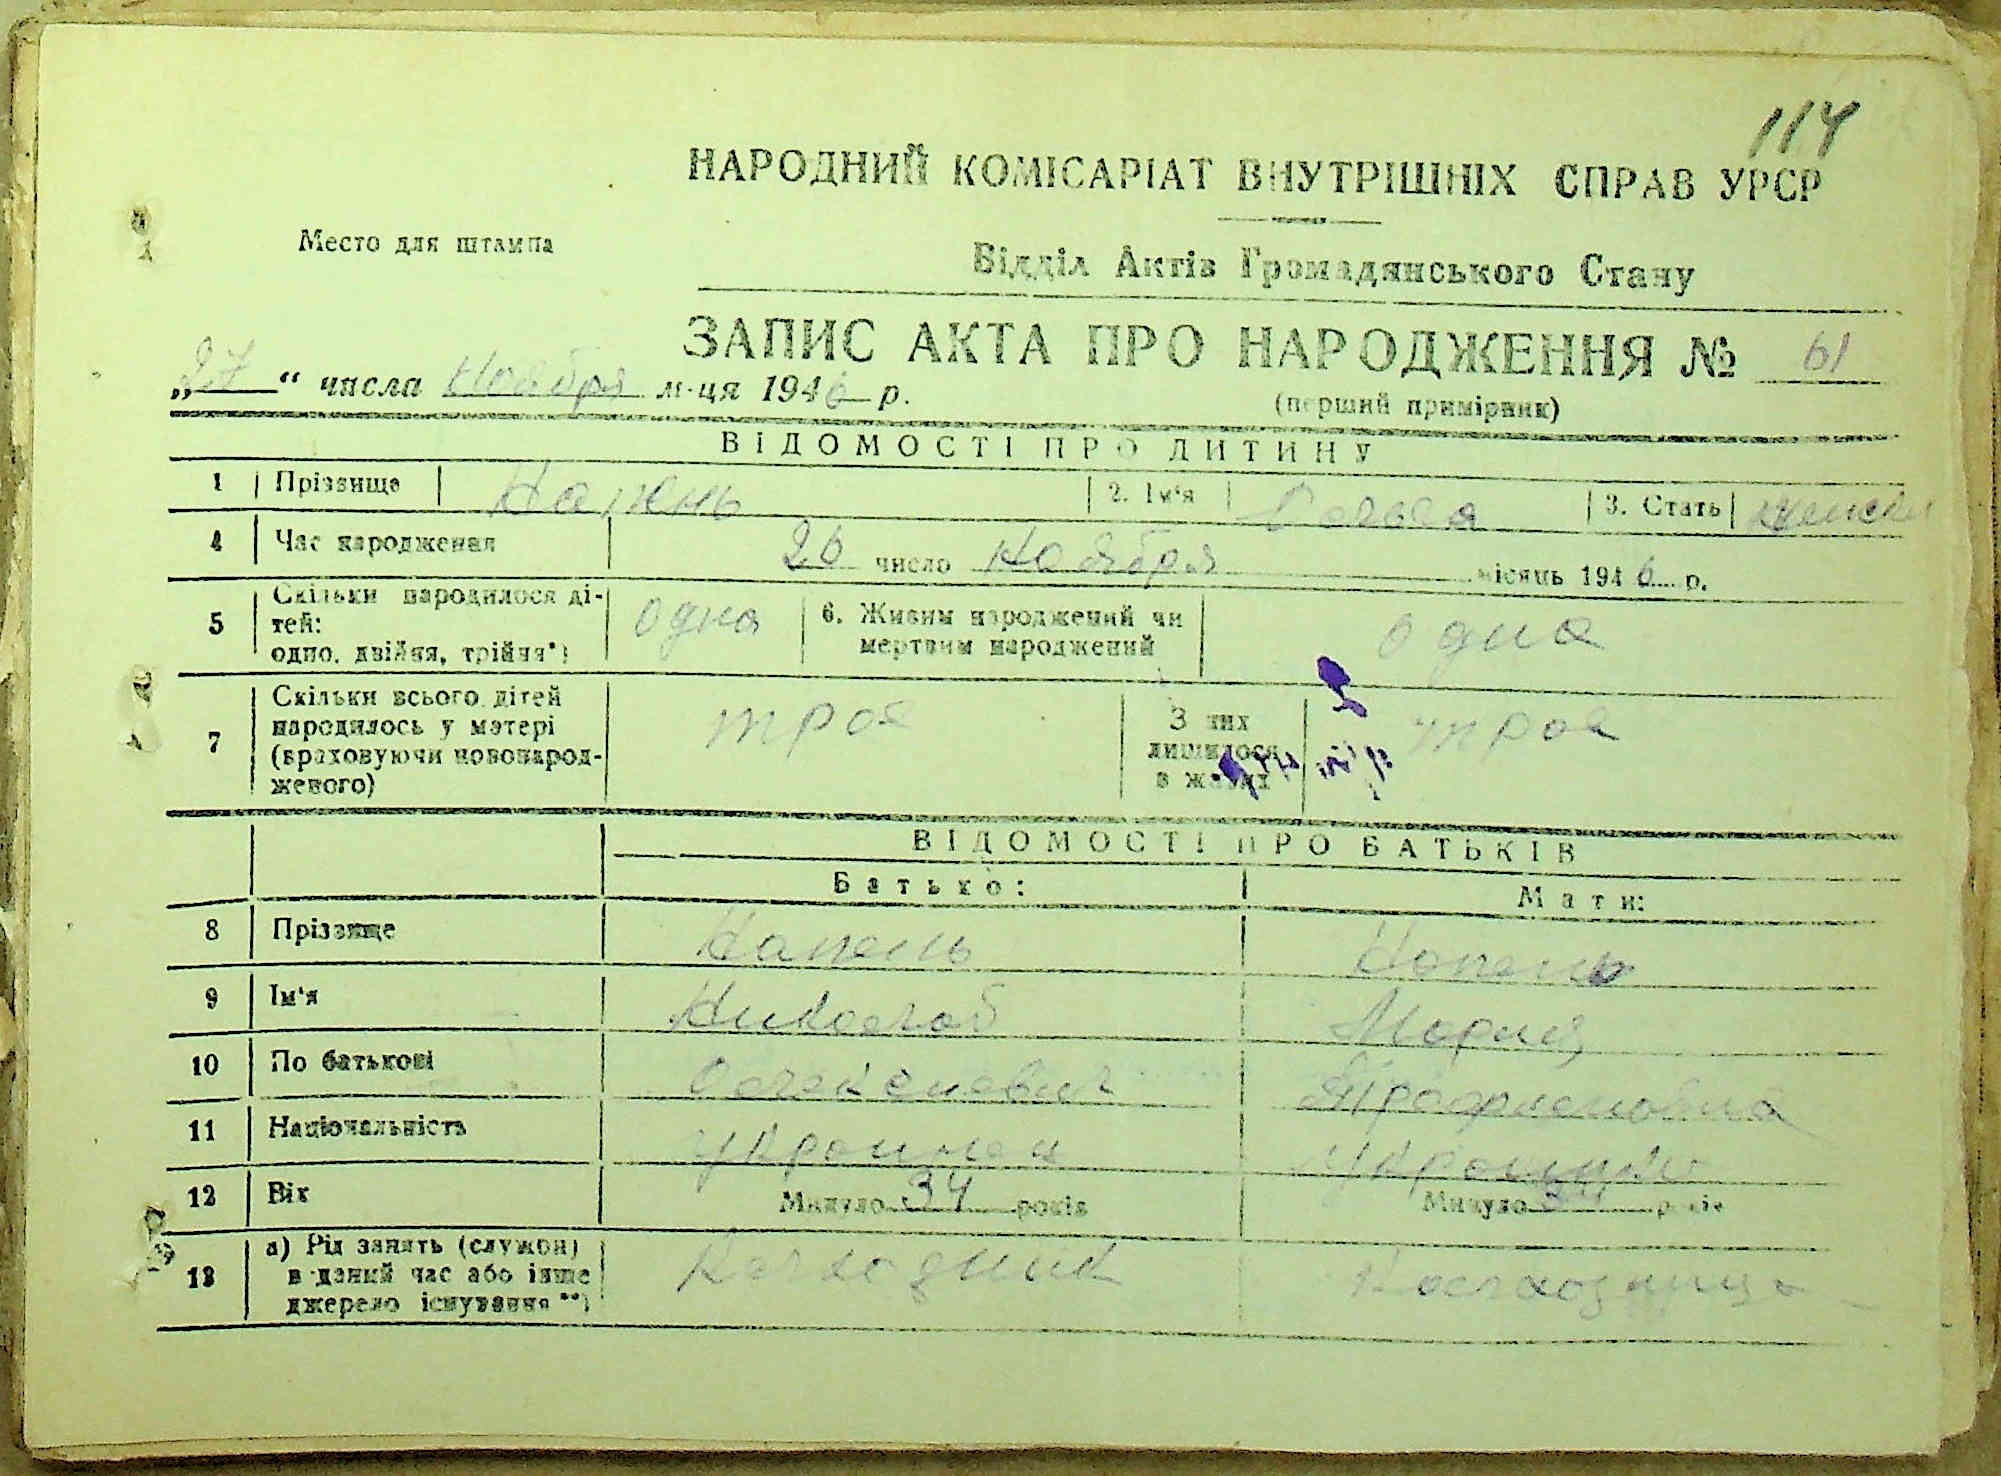 114
НАРОДНИЙ КОМІСАРІАТ ВНУТРІШНІХ СПРАВ УРСР
Место для штампа
Відділ Актів Громадянського Стану
ЗАПИС АКТА ПРО НАРОДЖЕННЯ № 61
„27“ числа Ноября м-ця 1946 р.
(перший примірник)
ВІДОМОСТІ ПРО ДИТИНУ
1 Прізвище 2. Ім'я 3. Стать женск
4 Час народження 26 число Ноября місяць 1946 р.
5 Скільки народилося ді-
тей:
одно, двійня, трійня*) одна 6. Живим народжений чи
мертвим народжений одна
7 Скільки всього дітей
народилось у матері
(враховуючи новонарод-
женого) трое З них
лишилося
в живих трое
ВІДОМОСТІ ПРО БАТЬКІВ
Батько: Мати:
8 Прізвище Напень Напень
9 Ім'я Николай Мария
10 По батькові Алексеевич Трофимовна
11 Національність украинец украинка
12 Вік Минуло 34 років Минуло 34 років
13 а) Рід занять (служби)
в даний час або інше
джерело існування **) Колходник Колходница